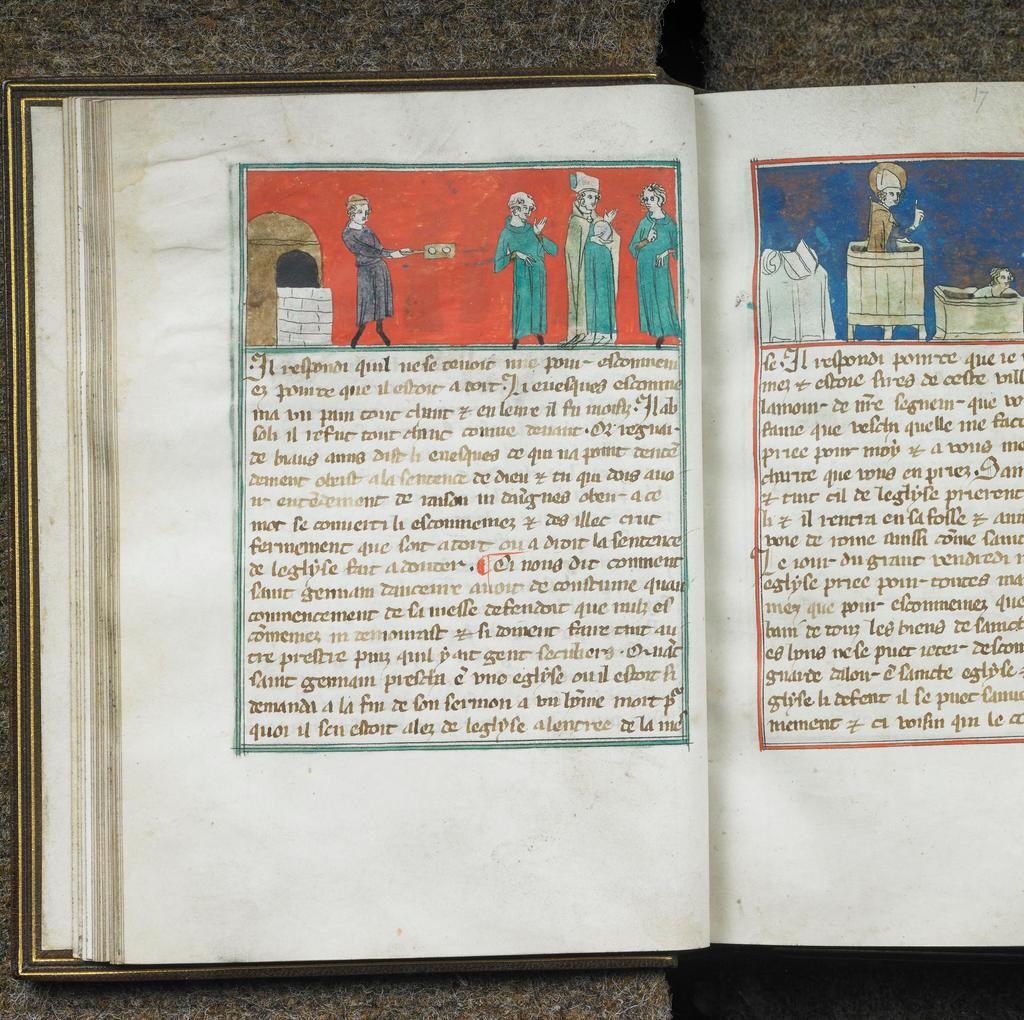 Il respondi quil ne se tenoit mie pour escommeni
ez pour ce que il estoit a tort. Li euesques escomme
nia vn pain tout chaut & en leure il fu moisiz. Il ab
soli il refut tout chaut comme deuant. Or regnar
de biaus amis dist li euesques ce qui na point denten
dement obeist a la sentence de dieu & tu qui dois auo
ir entendement de raison ni daignes obeir a ce
mot se conuerti li escommeniez & des illec crut
fermement que soit a tort ou a droit la sentence
de leglyse fait a douter. Ci nous dit comment
saint germain daucerre auoit de coustume quau
commencement de sa messe defendoit que nulz es
comeniez ni demourast & si doiuent faire tuit au
tre prestre puis quil y ait gent seculiers. Or auint
saint germain prescha e vne eglyse ou il estoit si
demanda a la fin de son sermon a vn home mort p
quoi il sen estoit alez de leglyse a lentree de la me
17
se. Il respondi pour ce que ie
mez & estoie sires de ceste vill
lamour de nre segneur que vo
fame que vesci quelle me face
priee pour moy & a vous me
charite que vous en priez. Sain
& tuit cil de leglyse prierent
li & il rentra en sa fosse & ann
voie de rome aussi come saint
Le iour du grant vendredi
eglyse prie pour toutes ma
mez que pour escommeniez que
bani de touz les biens de sainte
es lyns ne se puet ieter descom
guarde dalour e saincte eglyse
glyse li defent il se puet sauu
mement & ci voisin qui le